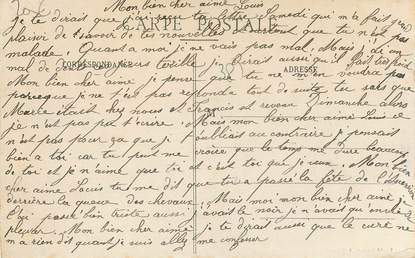 Mon bien cher aimé Louis
Je te dirait que
CARTE POSTALE
plaisir de savoir de tes nouvelles surtout que tu n'est pas
malade. Quant a moi j'ne vais pas mal. Mais j'ai un
mal de
CORRESPONDANCE
terrible je dirait aussi qu'il fait très froid
ADRESSE
Mon bien cher aimé je pense que tu ne m'en voudra pas
parraque je ne t'est pas repondu tout de suite tu sais que
Marle était chez nous et francis est revenu Dimanche alors
je n'est pas pu t'écrire. Mais mon bien cher aimé Louis ce
n'est pas pour ça que je oubliais au contraire je pensait
bien a toi car tu peut me croire que le temps me dure beaucoup
de toi et je n'aime que toi et c'est toi que je veux. Mon bien
cher aimé Louis tu me dit que tu a passé la fête de
derrière la queue des chevaux. Mais moi mon bien cher aimé je
l'ai passé bien triste aussi j'avait le noir je n'avait qu'envie de
pleurer. Mon bien cher aimé je te dirait aussi que le curé ne
m'a rien dit quant je suis allez me confesser